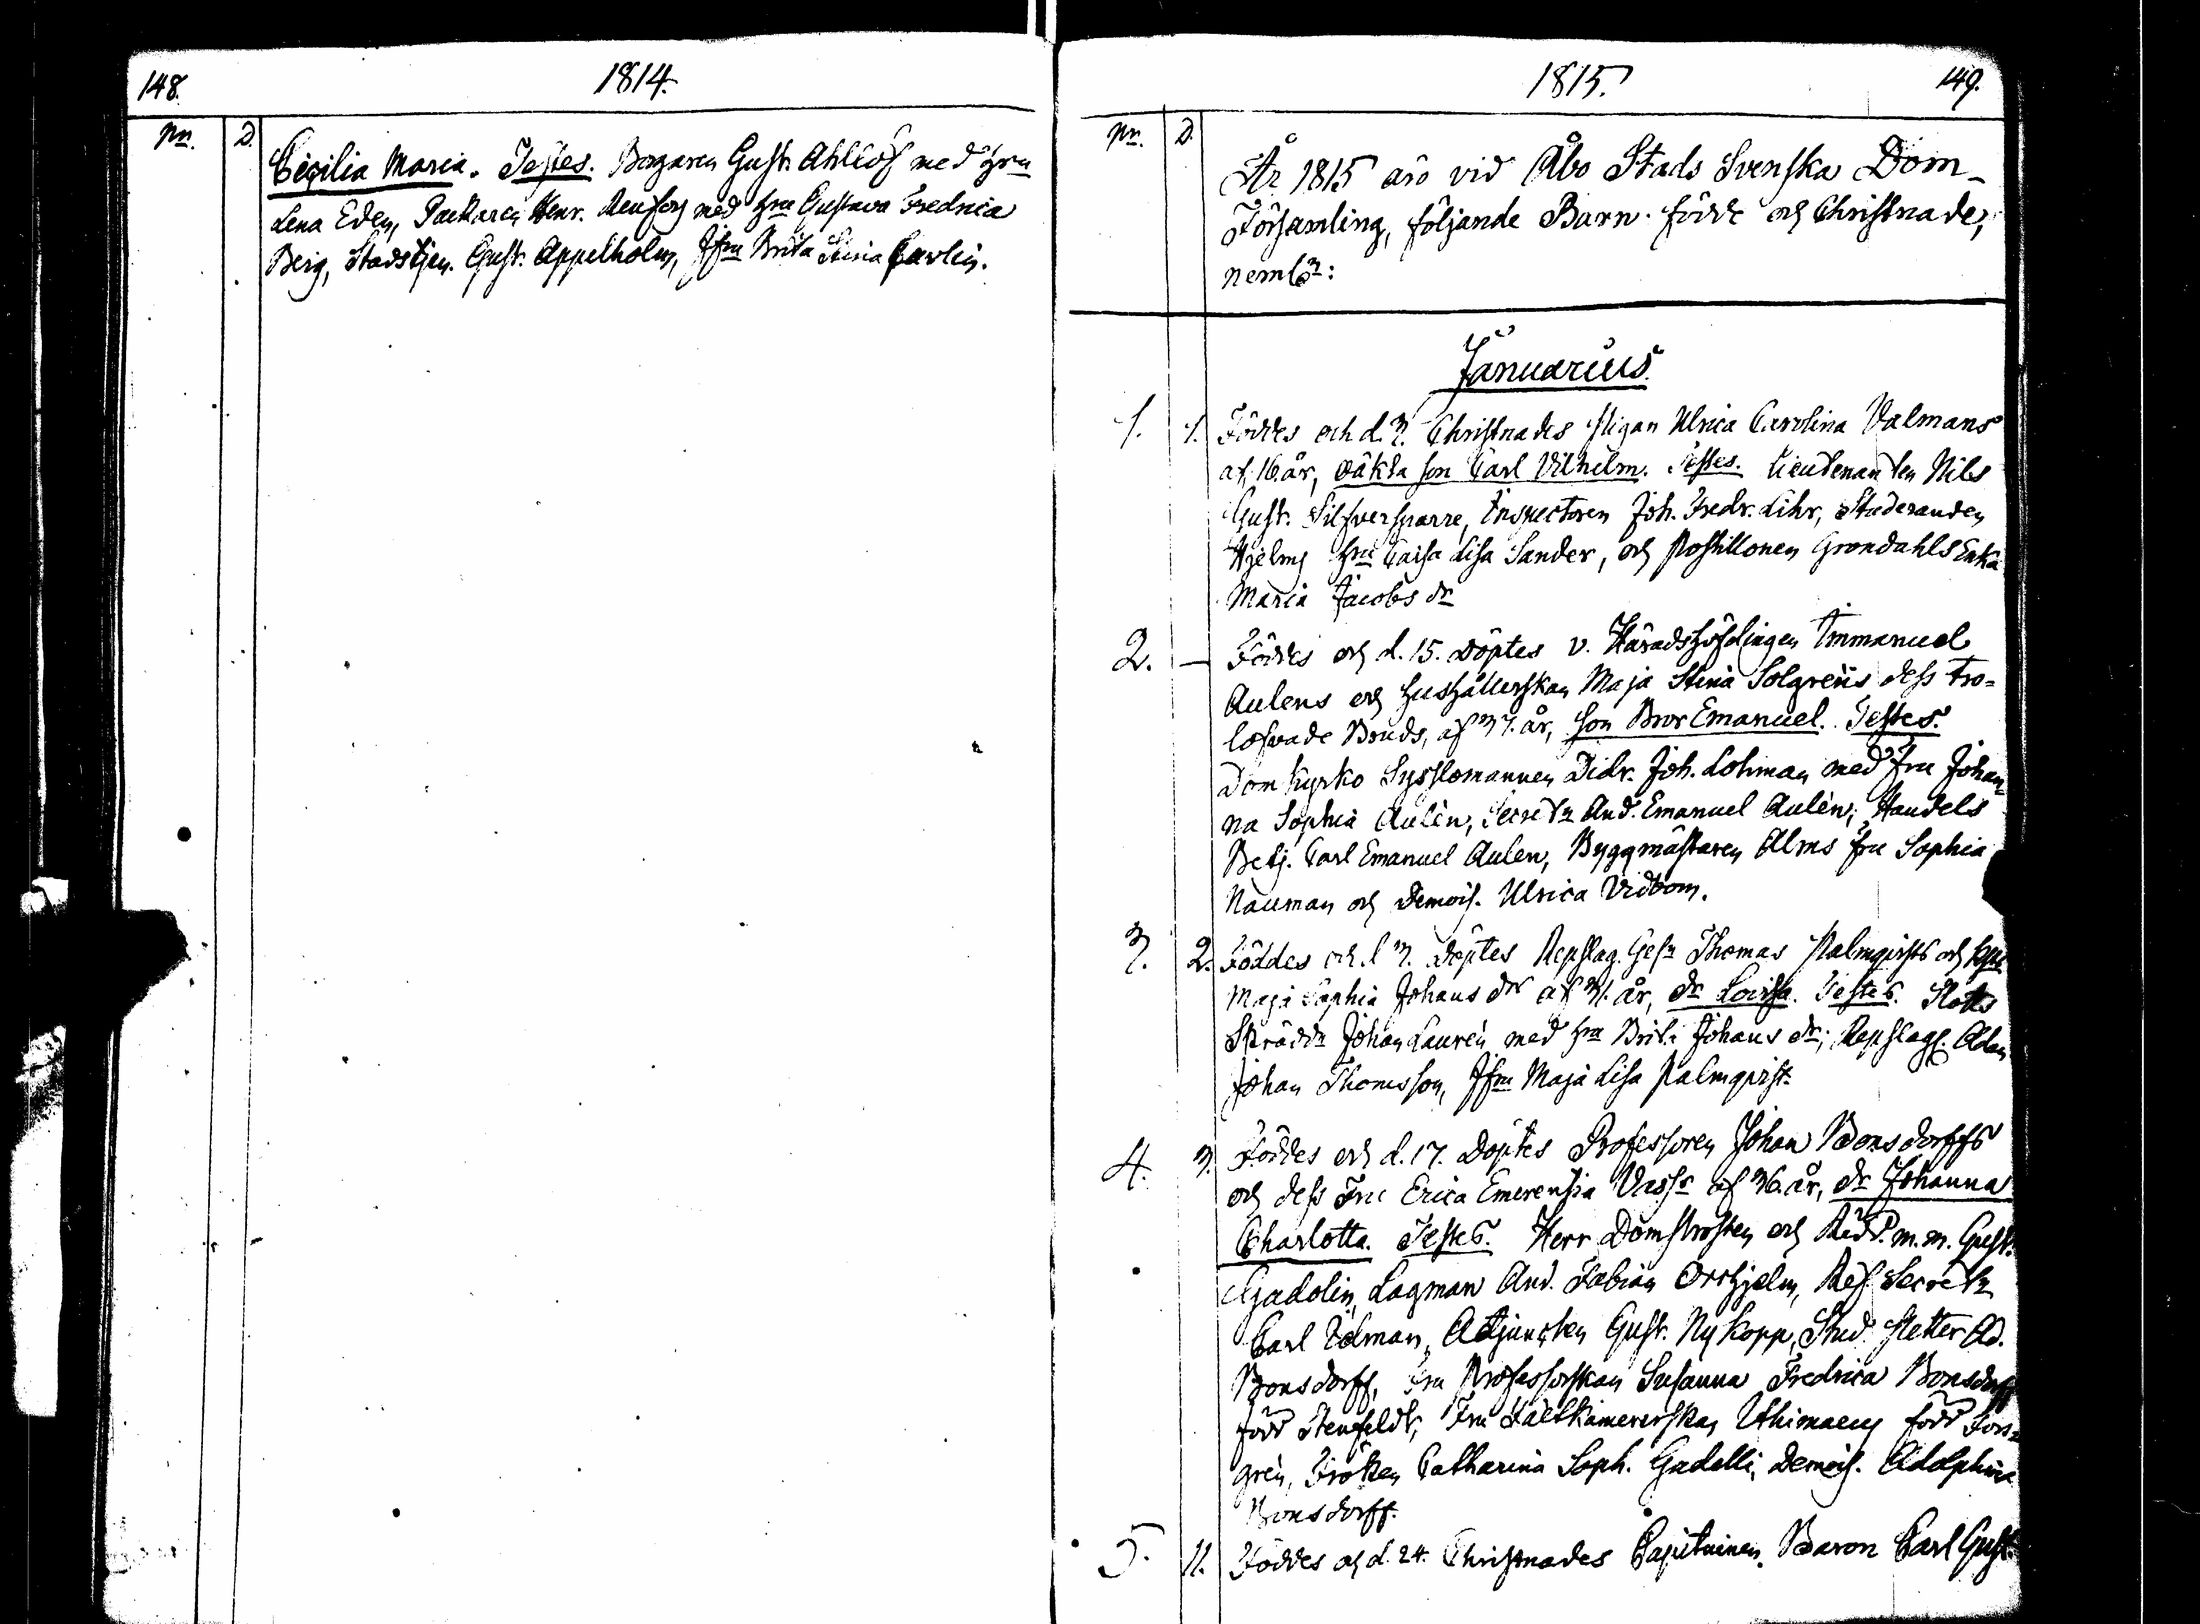 148.
1814.
Nr.
D.
Cecilia Maria. Testes. Borgaren Gust. Ahllöf med hru
Lena Eden, Packaren Henr. Renfors med hru Gustava Fredrica
Berg, Stadstjen. Gust. Appelholm, Jfru Brita Stina Carlin.
1815.
149.
Nr.
D.
År 1815 äro vid Åbo Stads Svenska Dom-
Församling, följande Barn födde och Christnade,
neml:
Januarius.
1. 1. Föddes och d. 3. Christnades Pigan Ulrica Carolina Valmans
af 16 år, oäkta son Carl Vilhelm. Testes. Lieutenanten Nils
Gust. Silfversparre, Inspectoren Joh. Fredr. Lihr, Studeranden
Hjelm, hru Caisa Lisa Sander, och Postillonen Grondahls Enka
Maria Jacobs dr
2. — Föddes och d. 15. Döptes v. Häradshöfdingen Immanuel
Aulens och hushållerskan Maja Stina Solgrens dess tro-
lofvade Bruds, af 37. år, son Bror Emanuel. Testes.
Domkyrko Sysslomannen Didr. Joh. Lohman med Fru Johan-
na Sophia Aulén, Secret And. Emanuel Aulén, Handels
Betj. Carl Emanuel Aulen, Byggmästaren Alms fru Sophia
Nauman och Demois. Ulrica Vidbom.
3. 2. Föddes och d. 3. döptes Repslag. Ges Thomas Palmqvists och hru
Maja Sophia Johans dr af 31. år, dr Lovisa. Testes. Slotts
Skrädd Johan Laurén med hru Brita Johans dr, Repslag. Adam
Johan Thomsson, Jfru Maja Lisa Palmqvist.
4. 3. Föddes och d. 17. Döptes Professoren Johan Bonsdorffs
och dess Fru Erica Emerentia Vass af 36. år, dr Johanna
Charlotta. Testes. Herr Domprosten och Rid. m. m. Gust.
Gadolin, Lagman And. Fabian Orrhjelm, Ref. Secret
Carl Edman, Adjuncten Gust. Nykopp, Stud. Petter Ad.
Bonsdorff, Fru Professorskan Susanna Fredrica Bonsdorff
född Stenfeldt, Fru Fältkamererskan Uthimaeus född Fors-
grén, Fröken Catharina Soph. Gadolli, Demois. Adolphina
Bonsdorff.
5. 11. Föddes och d. 24. Christnades Capitainen Baron Carl Gust.